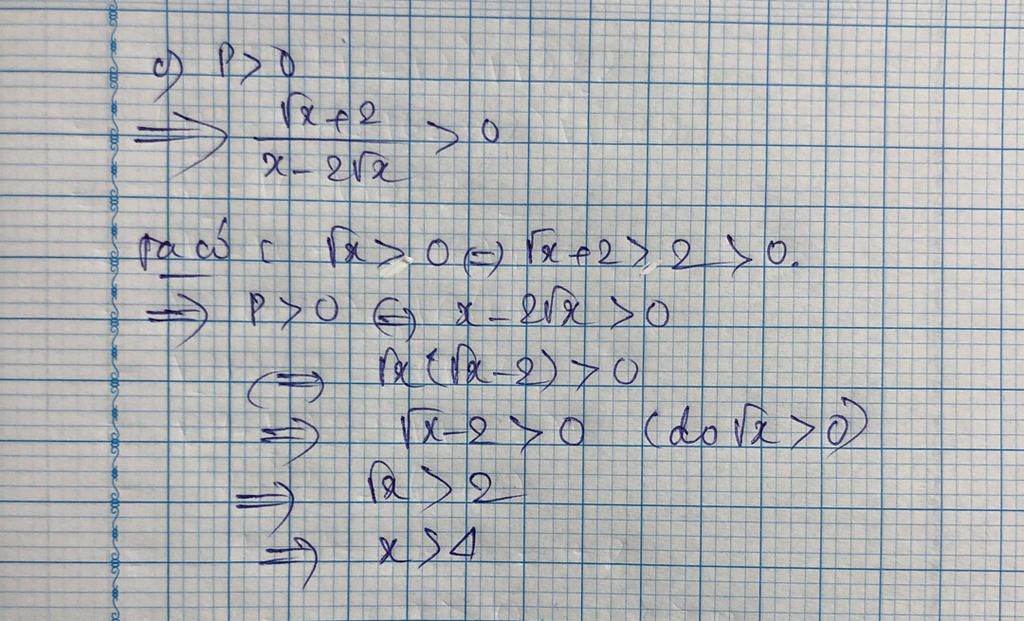 c) P > 0
⇒ (√x + 2)/(x - 2√x) > 0
Ta có : √x > 0 ⇔ √x + 2 > 2 > 0.
⇒ P > 0 ⇔ x - 2√x > 0
⇔ √x (√x - 2) > 0
⇒ √x - 2 > 0 (do √x > 0)
⇒ √x > 2
⇒ x > 4